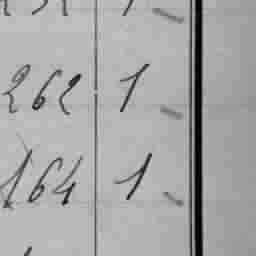 262 1
164 1